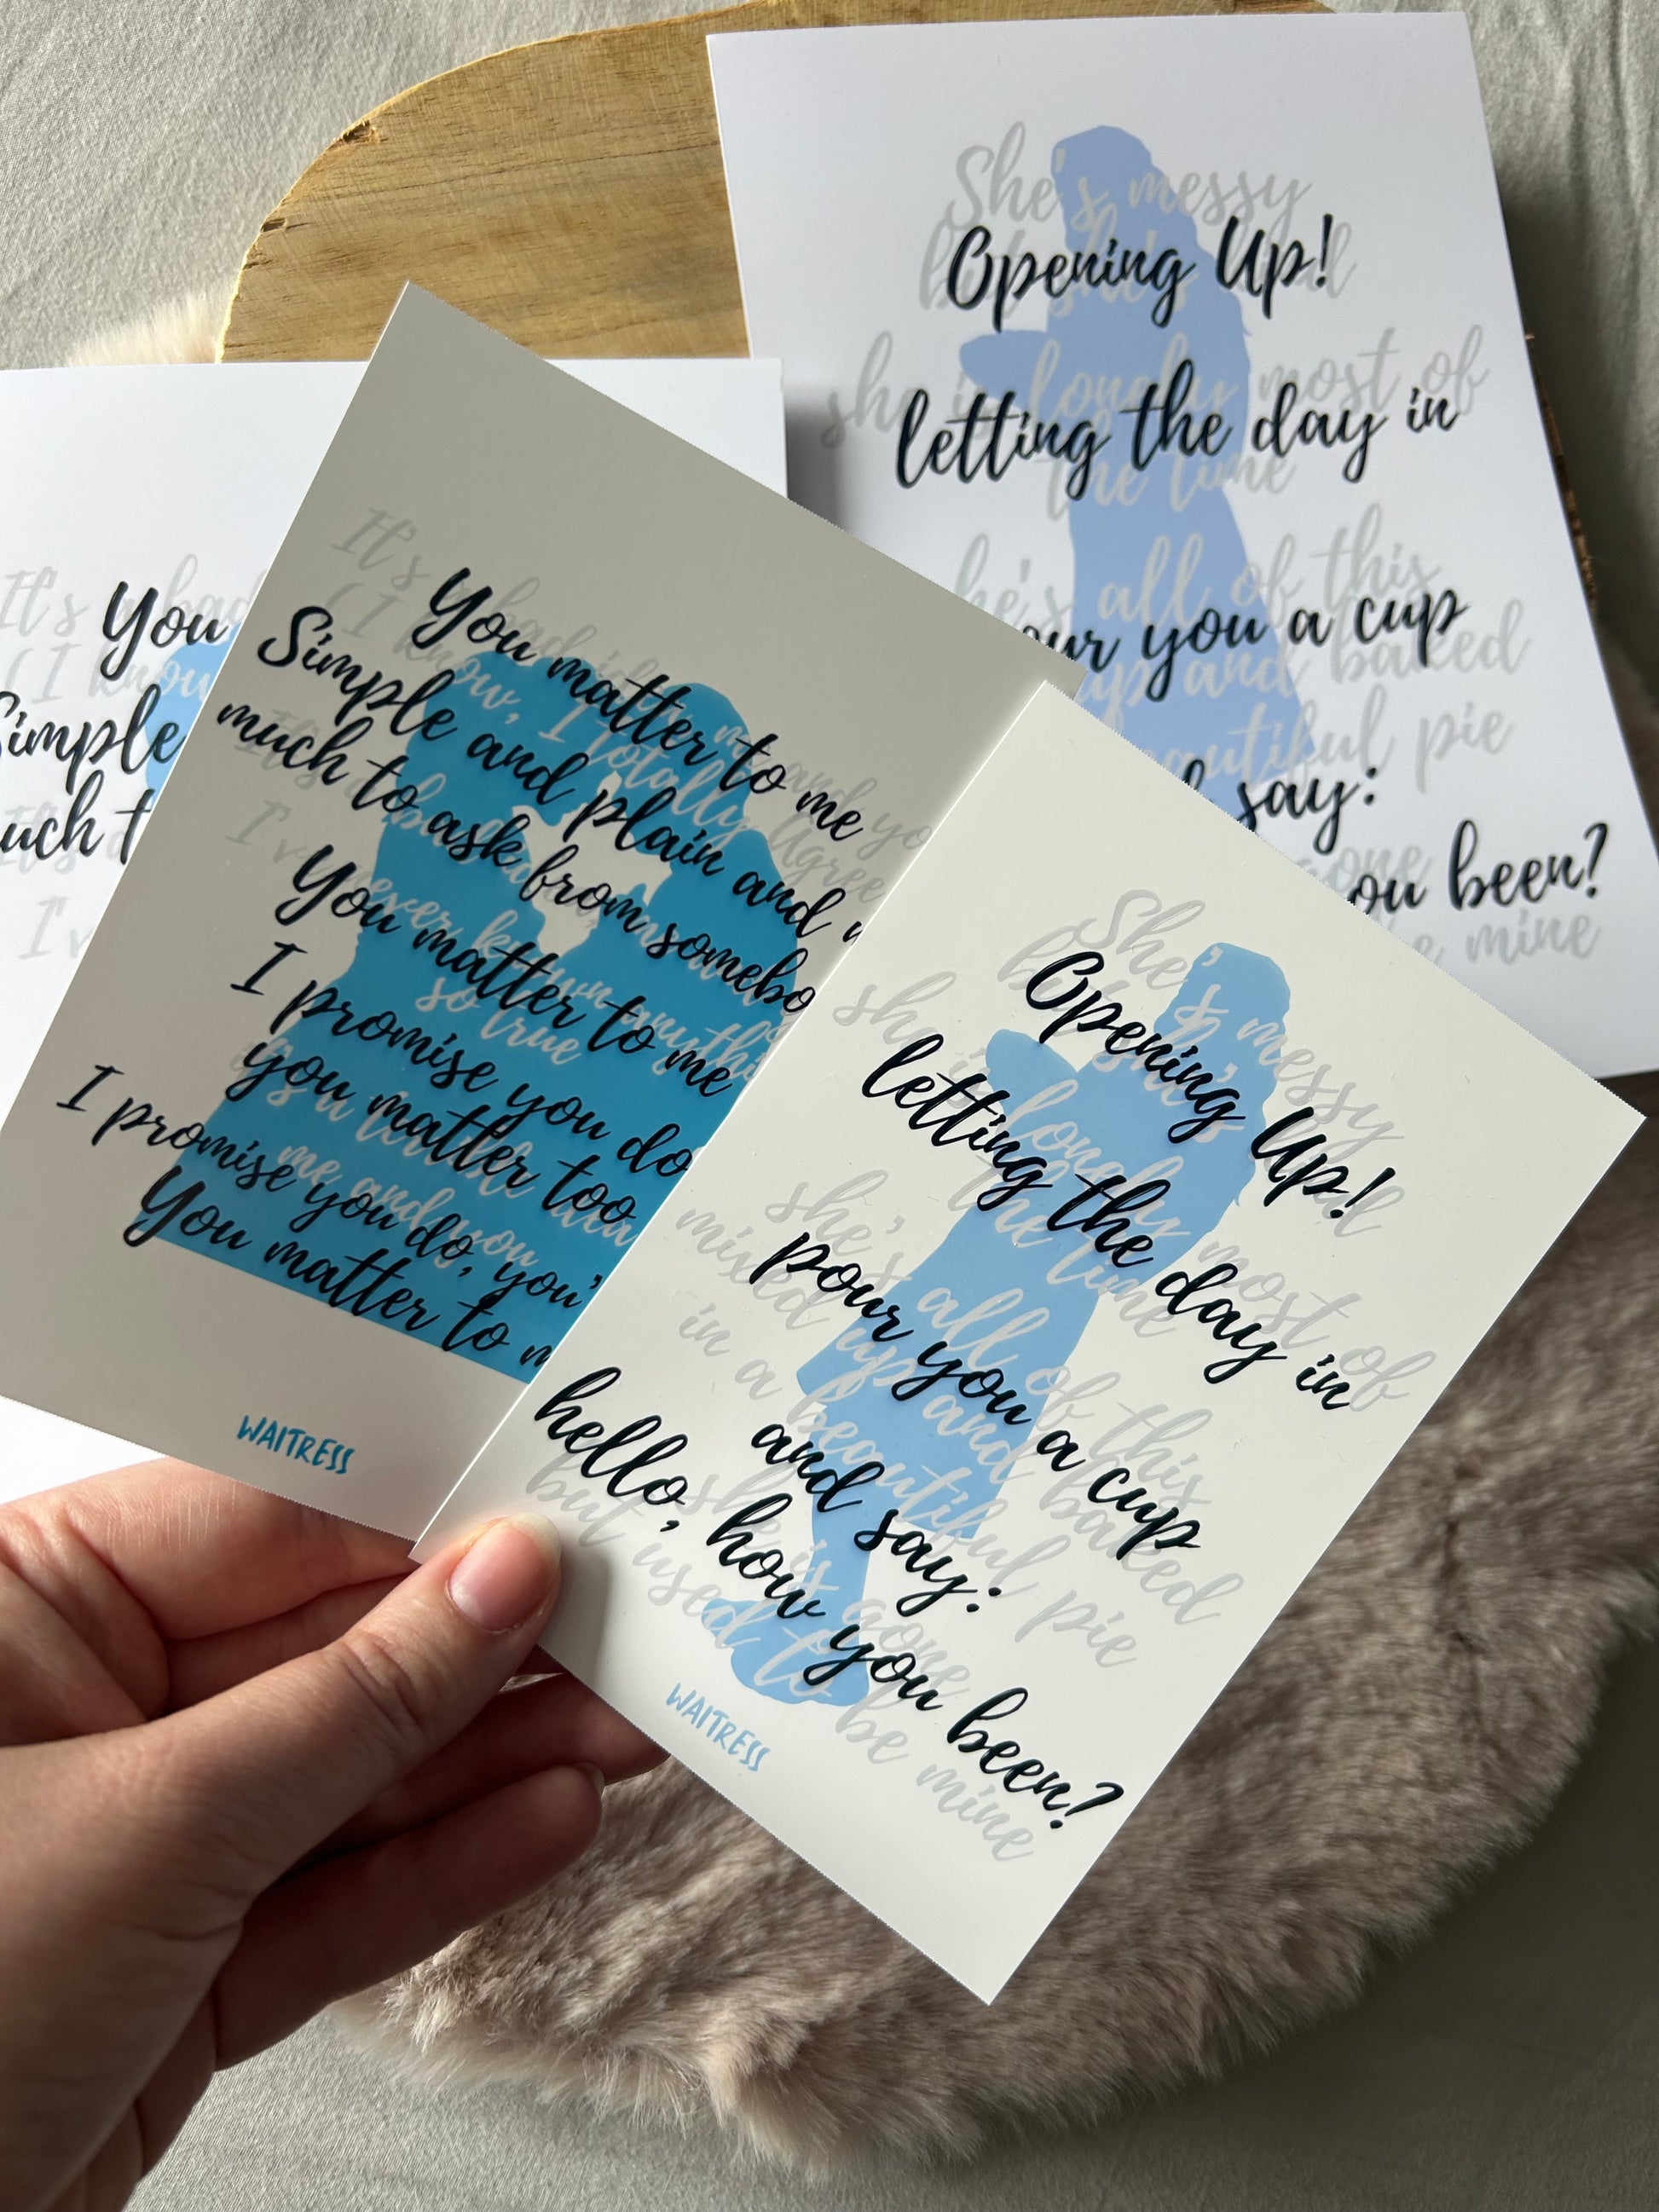 She's messy
Opening Up!
she is lonely most of
letting the day in
the time
he's all of this
our you a cup
up and baked
eautiful pie
say:
gone
ou been?
mine
It's a bad
You
(I know
Simple
uch t
It's
I'v
It's a bad idea me and you
You matter to me
(I know, I totally agree
Simple and plain and
much to ask from somebo
I've never known anythi
so true
You matter to me
I promise you do
you matter too
I promise you do, you'
me and you
You matter to m
WAITRESS
She's messy
Opening Up!
she is lonely most of
letting the day in
the time
she's all of this
mixed up and baked
pour you a cup
in a beautiful pie
and say:
she is gone
hello, how you been?
but used to be mine
WAITRESS